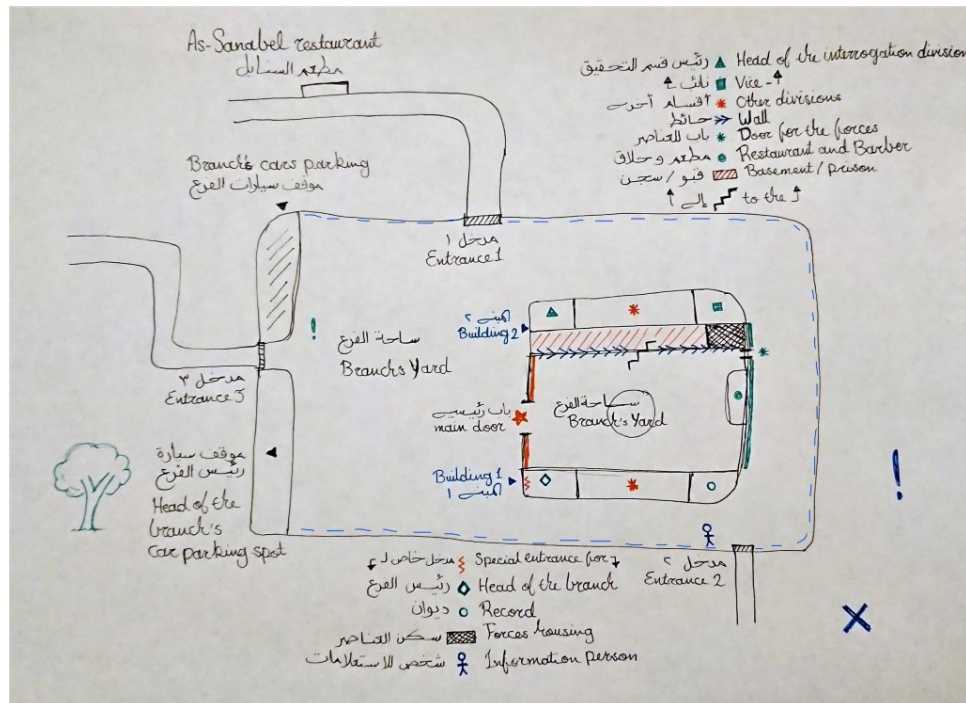 As-Sanabel restaurant
مطعم السنابل
رئيس قسم التحقيق Head of the interrogation division
نائب Vice -
أقسام أخرى Other divisions
حائط Wall
باب للعناصر Door for the forces
مطعم وحلاق Restaurant and Barber
قبو / سجن Basement / prison
إلى to the
Branch's cars parking
موقف سيارات الفرع
مدخل ١
Entrance 1
المبنى ٢
Building 2
!
ساحة الفرع
Branch's Yard
مدخل ٣
Entrance 3
ساحة الفرع
Branch's Yard
باب رئيسي
main door
موقف سيارة
رئيس الفرع
Head of the
branch's
car parking spot
Building 1
المبنى ١
!
مدخل ٢
Entrance 2
مدخل خاص لـ Special entrance for
رئيس الفرع Head of the branch
ديوان Record
سكن العناصر Forces housing
شخص للاستعلامات Information person
X